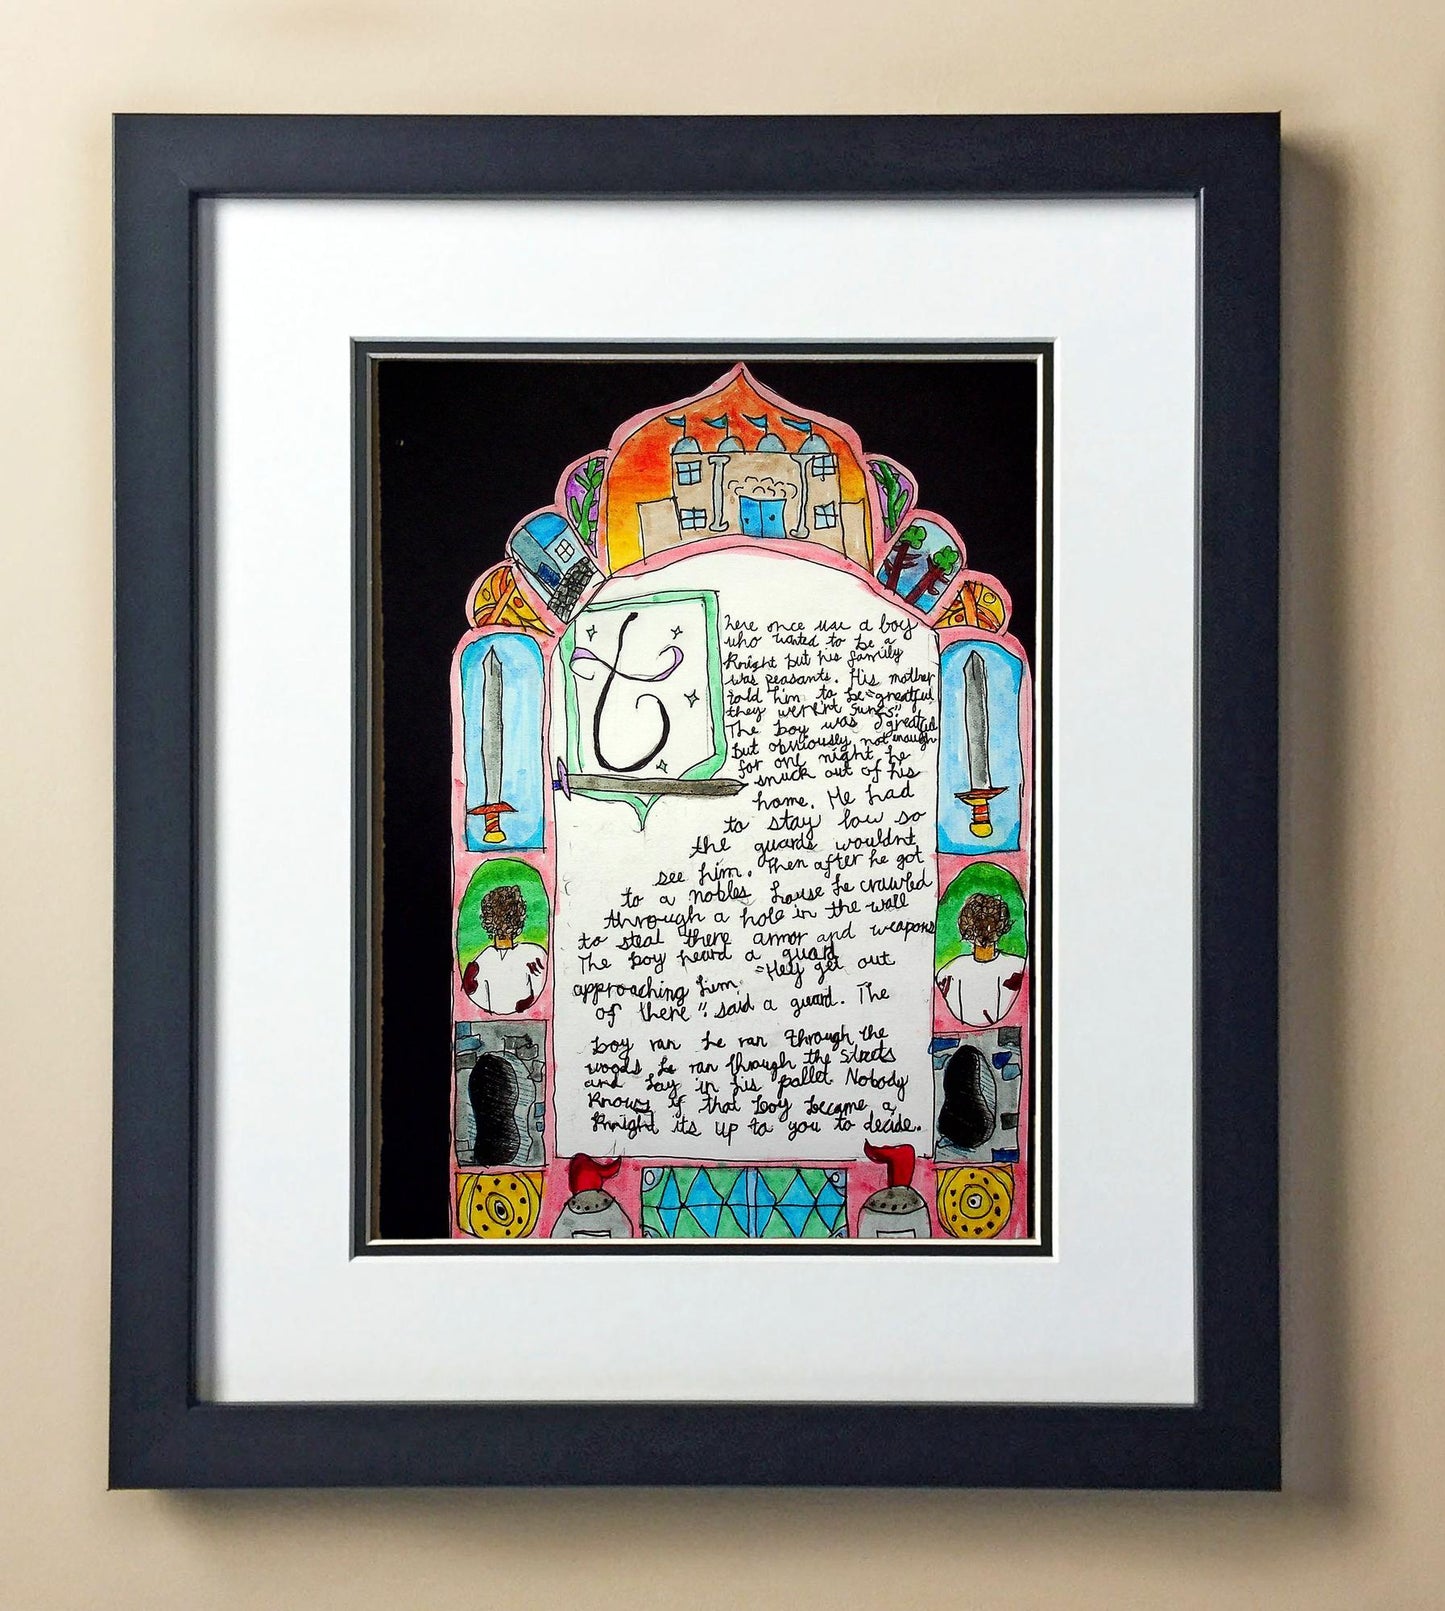 t
here once was a boy
who wanted to be a
knight but his family
was peasants. His mother
told him to be "greatful
they weren't surfs"
The boy was greatful
but obviously not enough
for one night he
snuck out of his
home. He had
to stay low so
the guards wouldnt
see him. Then after he got
to a nobles house he crawled
through a hole in the wall
to steal there armor and weapons
The boy heard a guard
approaching him. "Hey get out
of there". said a guard. The
boy ran he ran through the
woods he ran through the streets
and lay in his pallet. Nobody
knows if that boy became a
knight its up to you to decide.